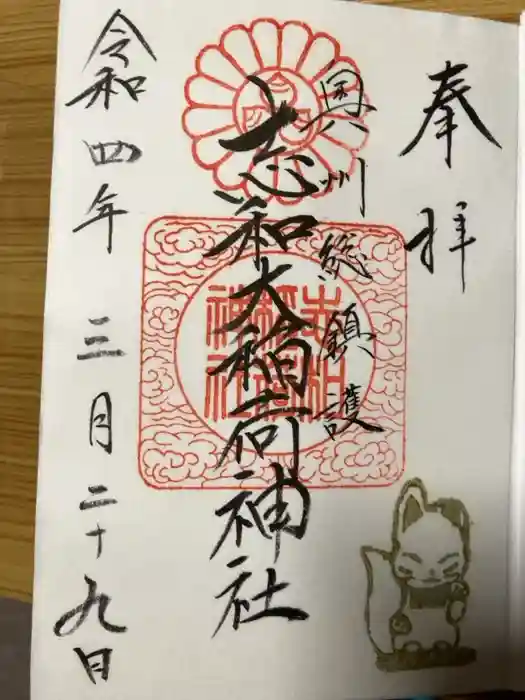 奉拝
奥州総鎮護
志和大稲荷神社
志和稲荷神社
令和四年三月二十九日